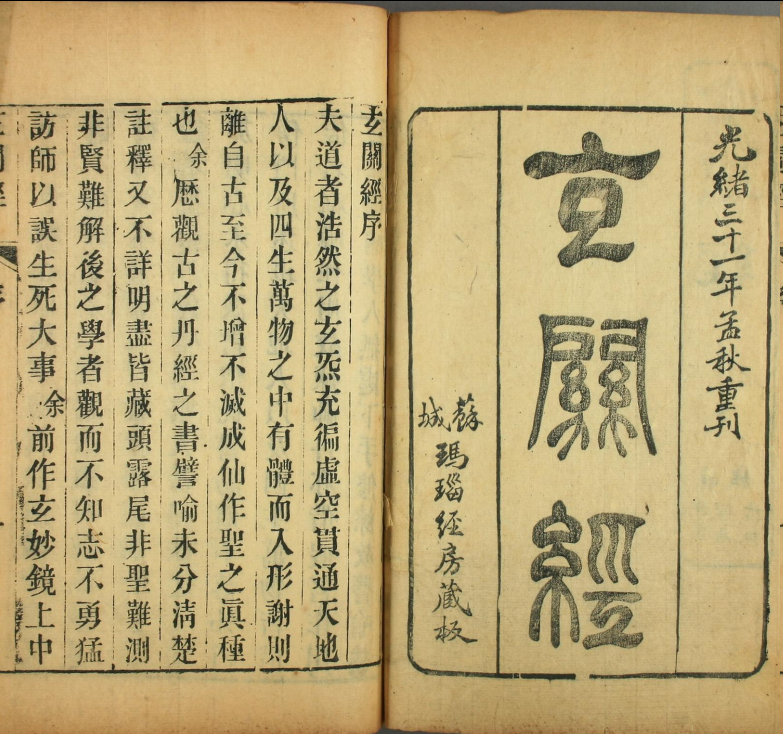 光緒三十一年孟秋重刊
玄關經
蘇城瑪瑙经房藏板
玄關經序
夫道者浩然之玄炁充徧虛空貫通天地
人以及四生萬物之中有體而入形謝則
離自古至今不增不滅成仙作聖之眞種
也余歷觀古之丹經之書譬喻未分清楚
註釋又不詳明盡皆藏頭露尾非聖難測
非賢難解後之學者觀而不知志不勇猛
訪師以誤生死大事余前作玄妙鏡上中